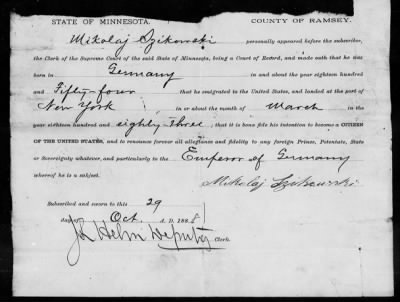 STATE OF MINNESOTA. COUNTY OF RAMSEY.
Mikolaj Szikowski personally appeared before the subscriber,
the Clerk of the Supreme Court of the said State of Minnesota, being a Court of Record, and made oath that he was
born in Germany in and about the year eighteen hundred
and Fifty-four that he emigrated to the United States, and landed at the port of
New York in or about the month of March in the
year eighteen hundred and eighty Three, that it is bona fide his intention to become a CITIZEN
OF THE UNITED STATES, and to renounce forever all allegiance and fidelity to any foreign Prince, Potentate, State
or Sovereignty whatever, and particularly to the Emperor of Germany
whereof he is a subject.
Mikolaj Szikowski
Subscribed and sworn to this 29
day of Oct. A. D. 1888
J R Helm Deputy Clerk.